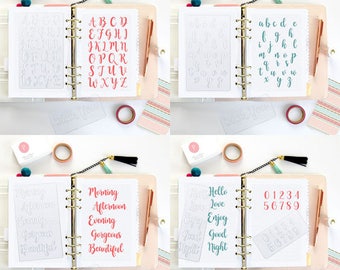 A B C D
E F G H I
J K L M N
O P Q R S
T U V W
X Y Z
a b c d e
f g h i
j k l m
n o p
q r s t u
v w x
y z
Morning
Afternoon
Evening
Gorgeous
Beautiful
Hello
Love
Enjoy
Good
Night
0 1 2 3 4
5 6 7 8 9